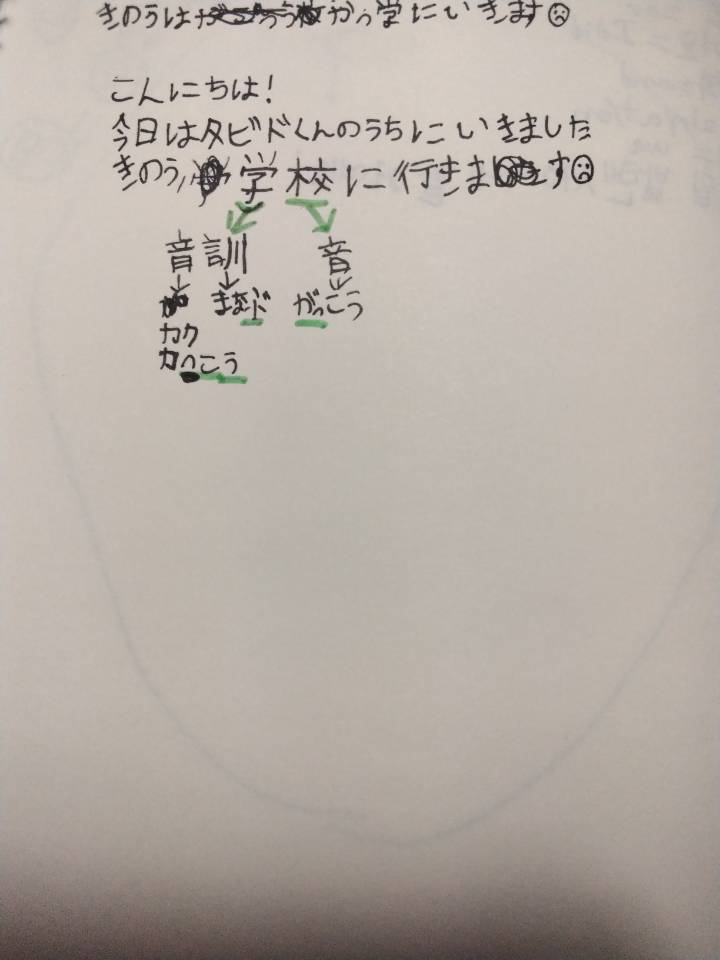 きのうは かっ学にいきます
こんにちは!
今日はタビドくんのうちにいきました
きのう 学校に行きます
音 訓 音
まなド がっこう
カク
カっこう